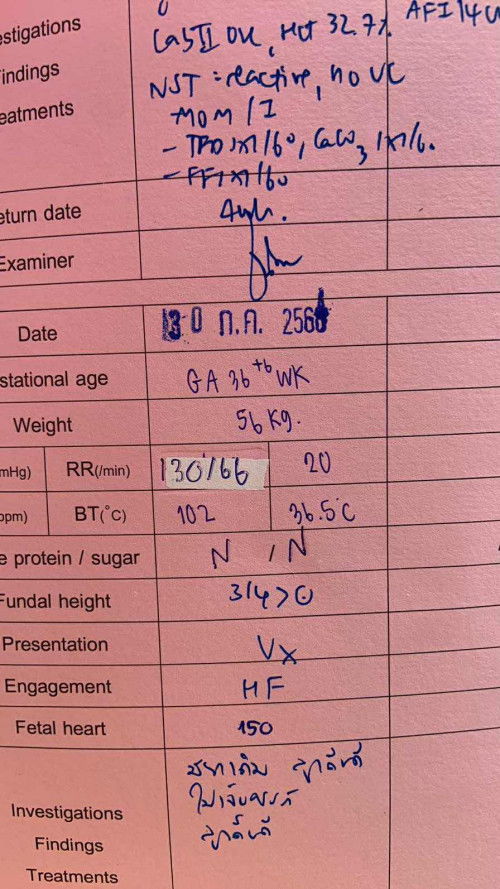 AFI 14
estigations Lab II OK, Hct 32.7%
indings NST : reactive, no UC
eatments
MOM / I
CaCO3 1x1/60
- FF 1x1/60
eturn date
Examiner
Date 30 ก.ค. 256
stational age GA 36+6 WK
Weight 56 Kg.
mHg) RR(/min) 130/66 20
ppm) BT(°C) 102 36.5°C
e protein / sugar N / N
Fundal height 3/4 > O
Presentation Vx
Engagement HF
Fetal heart 150
ลูกดิ้นดี
Investigations ไม่เจ็บครรภ์
Findings ลูกดิ้นดี
Treatments